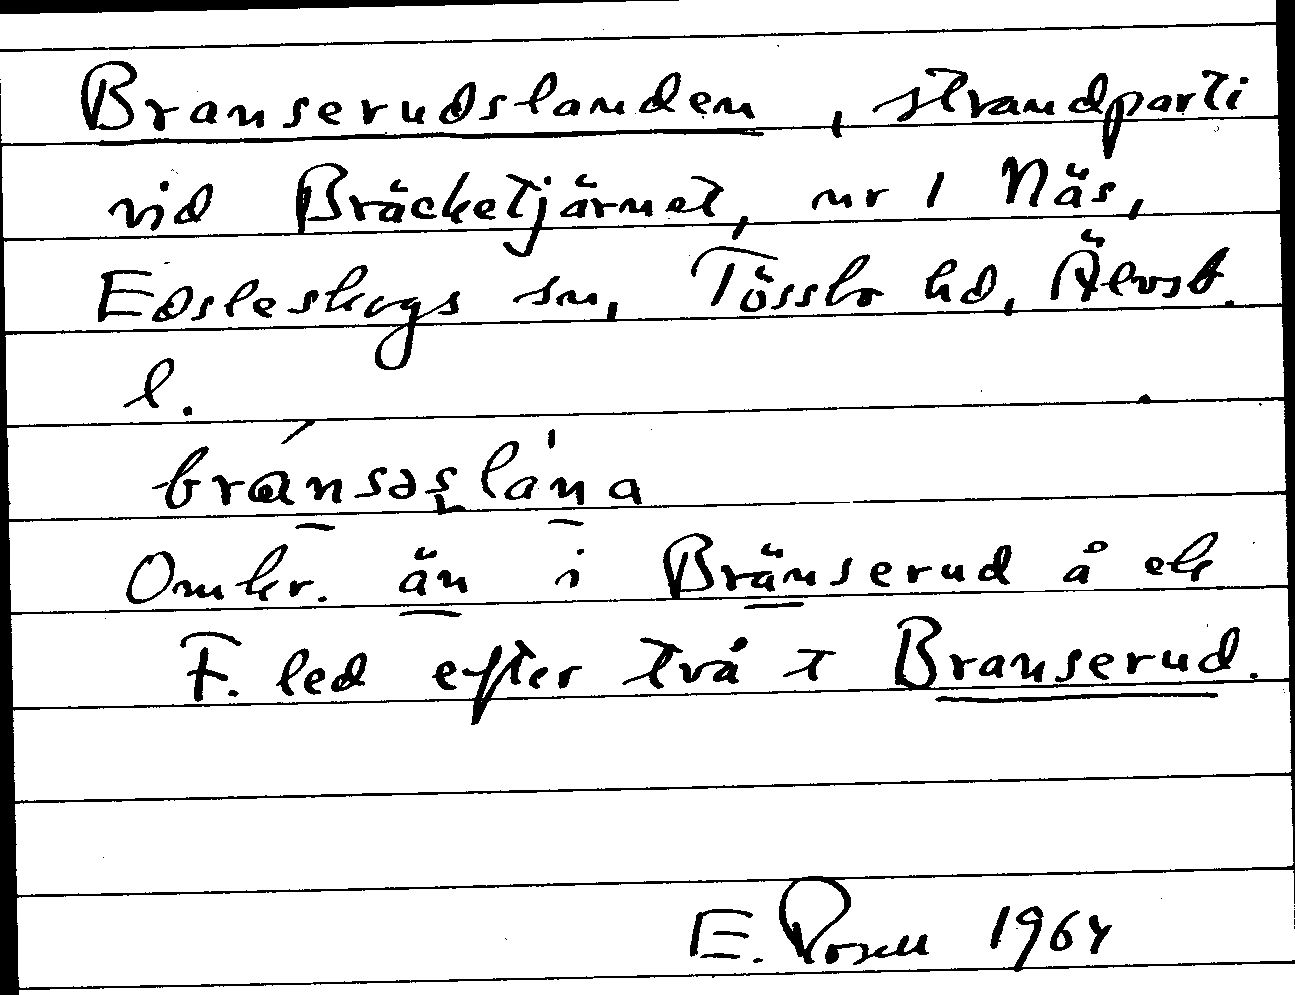 Branserudslanden, strandparti
vid Bräcketjärnet, nr 1 Näs,
Edsleskogs sn, Tössbo hd, Älvsb.
l.
bránsəʂlána
Omkr. än i Bränserud å ek
F. led efter två t Branserud.
E. Rosell 1964